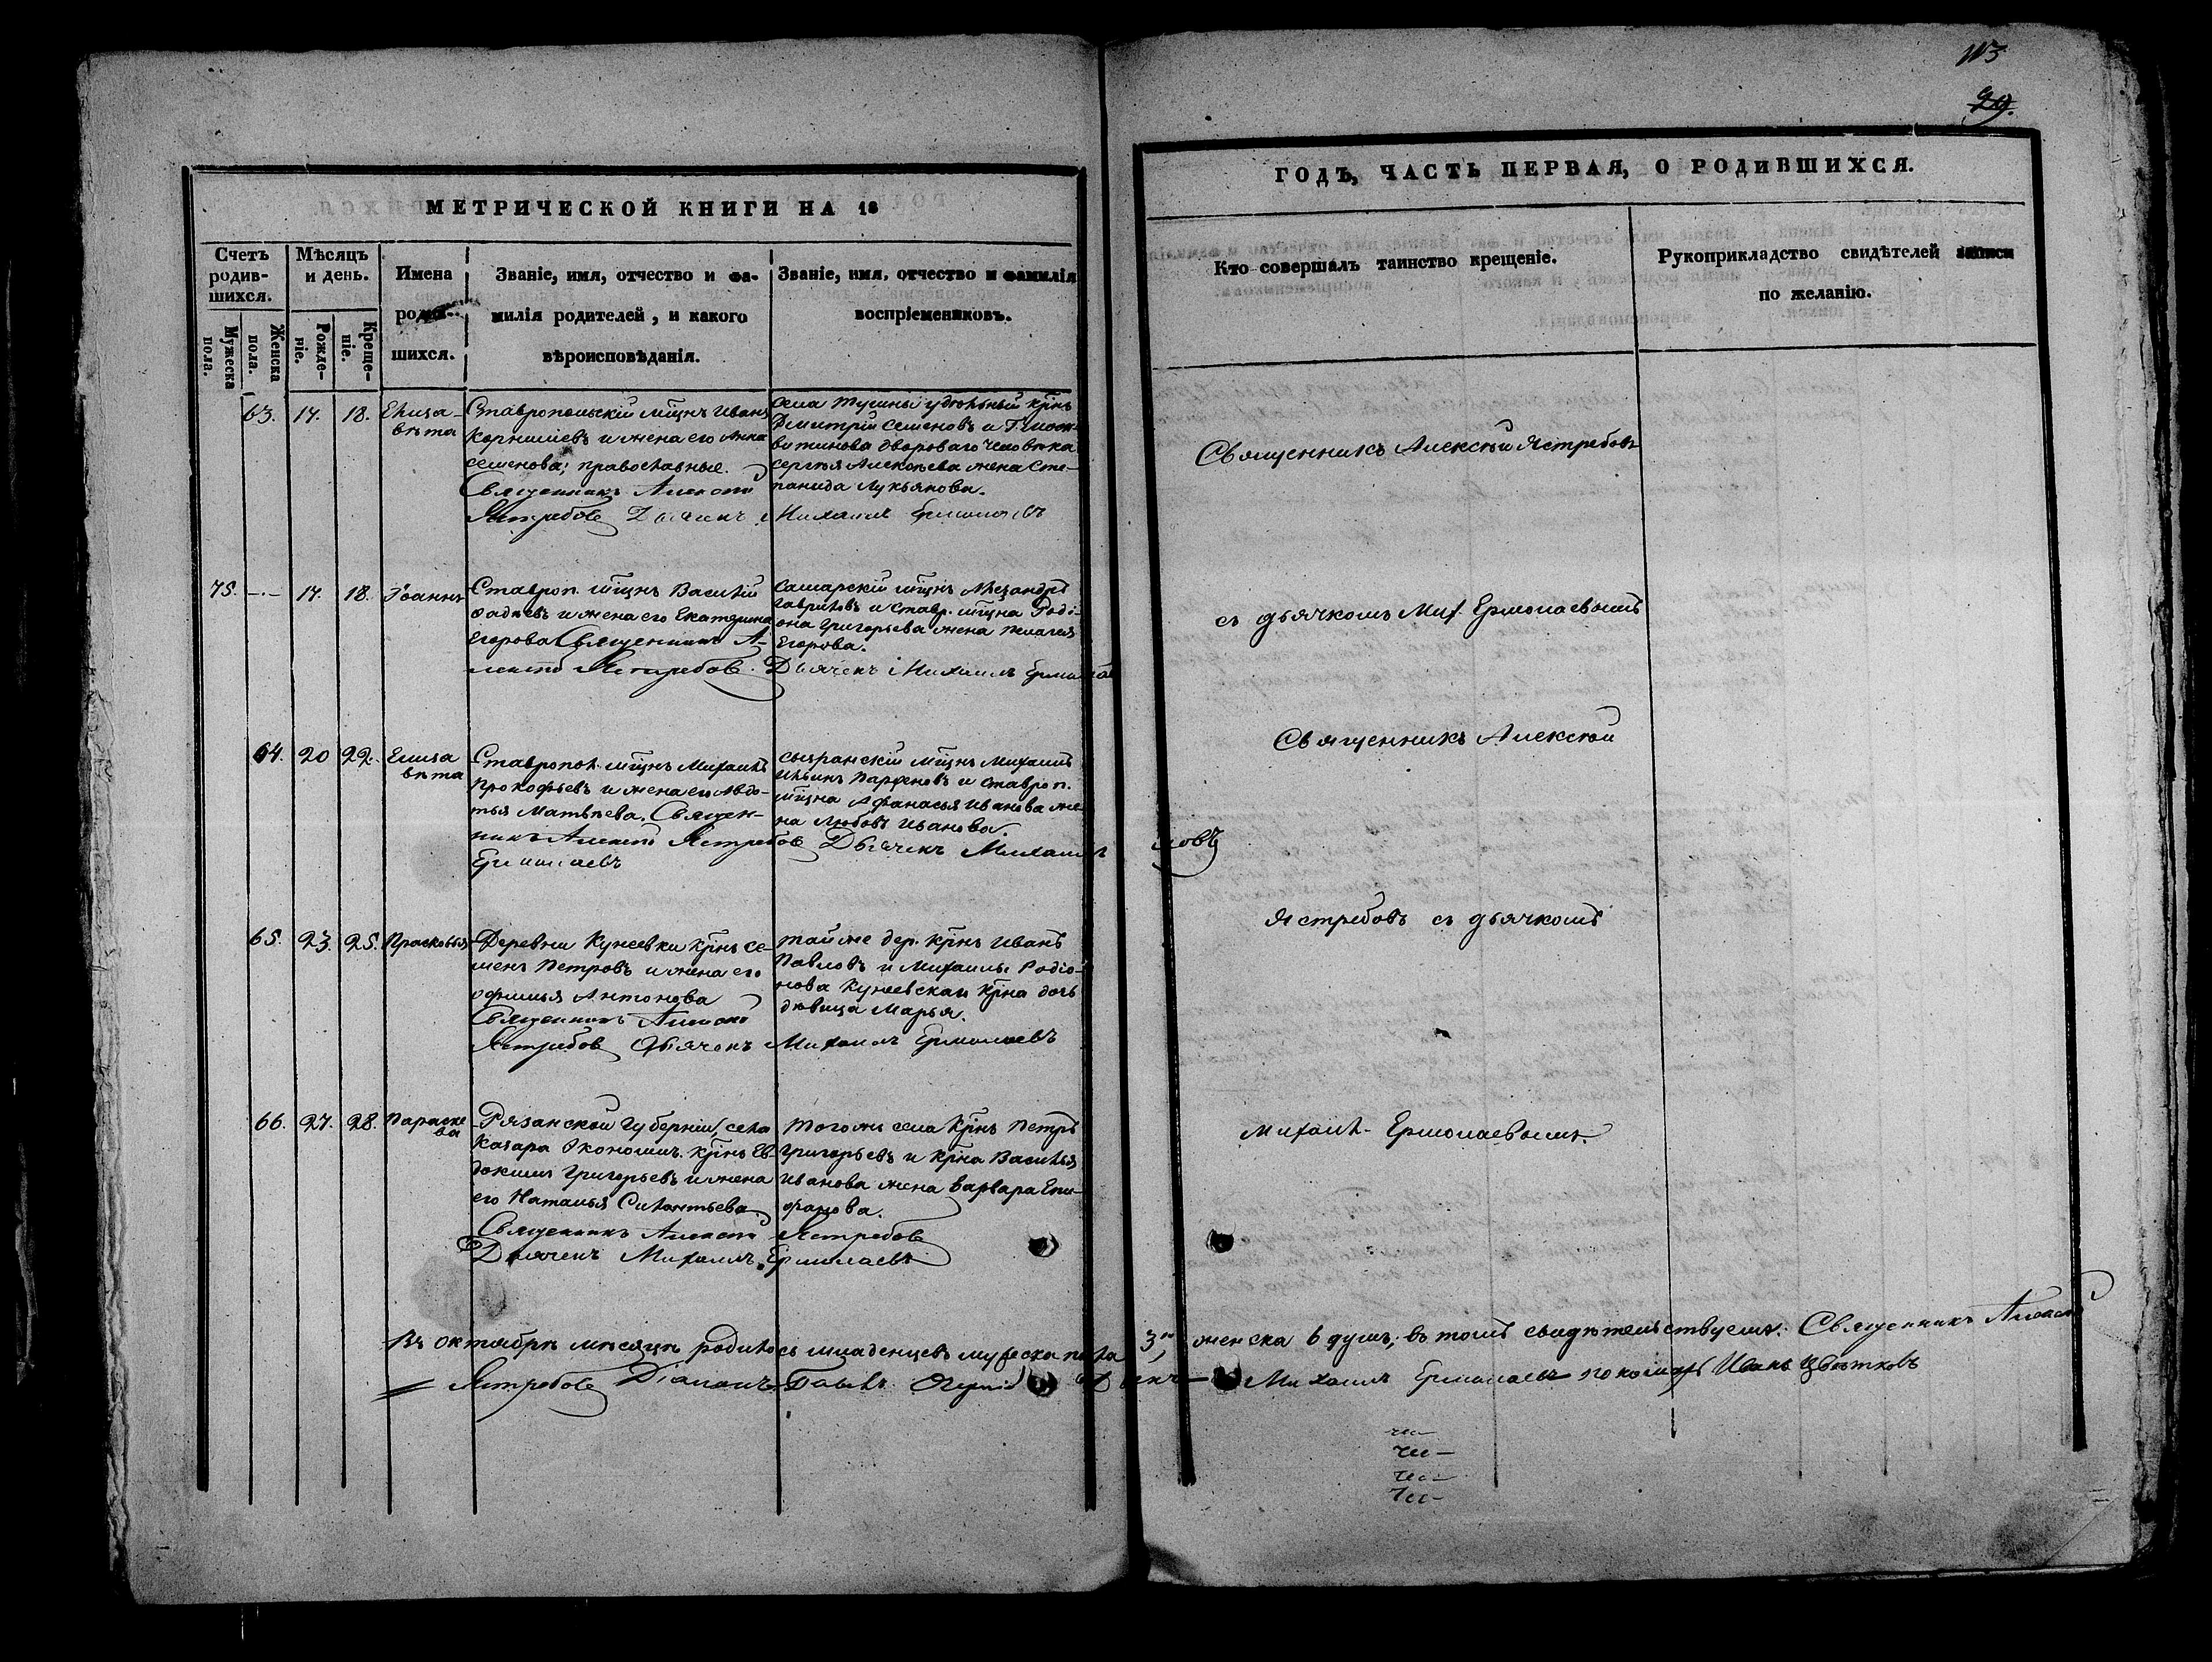 113
29.
МЕТРИЧЕСКОЙ КНИГИ НА 18
ГОДЪ, ЧАСТЬ ПЕРВАЯ, О РОДИВШИХСЯ.
Счетъ родив-шихся.
Мужеска пола.
Женска пола.
Мѣсяцъ и день.
Рожде-ніе.
Креще-ніе.
Имена
шихся.
Званіе, имя, отчество и фа-
милія родителей, и какого
вѣроисповѣданія.
Званіе, имя, отчество и фамилія
воспріемниковъ.
Кто совершалъ таинство крещеніе.
Рукоприкладство свидѣтелей записи
по желанію.
63. 17. 18. Елиза-
вѣта
Ставропольскій мщнъ Иванъ
Корниліевъ и жена его Анна
Семенова; православные.
Священникъ Алексій
Ястребовъ Дьячекъ Михаилъ Ермолаевъ
села удѣльный крнъ
Дмитрій Семеновъ и
двороваго человѣка
Сергѣя Алексѣева жена Сте-
панида Лукьянова.
Священникъ Алексѣй Ястребовъ
75. -.- 17. 18. Іоаннъ
Ставроп. мщнъ Василій
Фадѣевъ и жена его Екатерина
Егорова Священникъ А-
лексій Ястребовъ. Дьячекъ Михаилъ Ермо
Самарскій мщнъ Александръ
Гавриловъ и Ставр. мщна Родi-
она Григорьева жена Пелагея
Егорова.
съ дьячкомъ Мих. Ермолаевымъ
64. 20 22. Елиза
вѣта
Ставропол. мщнъ Михаилъ
Прокофьевъ и жена его Авдо-
тья Матвѣева. Священ-
никъ Алексій Ястребовъ Дьячекъ Михаилъ
Ермолаевъ
Сызранскій мщнъ Михаилъ
Ильинъ Парфеновъ и Ставроп.
мщна Афанасья Иванова же-
на Любовь Иванова.
Священникъ Алексѣй
65. 23. 25. Прасковья
Деревни Кунеевки крнъ Се-
менъ Петровъ и жена его
Офимья Антонова
Священникъ Алексій
Ястребовъ Дьячекъ Михаилъ Ермолаевъ
той же дер. крнъ Иванъ
Павловъ и Михаилы Родіо-
нова Кунеевская крна дочь
дѣвица Марья.
Ястребовъ съ дьячкомъ
66. 27. 28. Параске
ва
Рязанской губерніи, села
Казара Экономич. крнъ Ев-
докимъ Григорьевъ и жена
его Наталья Силантьева.
Священникъ Алексій Ястребовъ
Дьячекъ Михаилъ Ермолаевъ
того же села крнъ Петръ
Григорьевъ и крна Василья
Иванова жена Варвара Епи-
фанова.
Михаил. Ермолаевымъ.
Въ октябрѣ мѣсяцѣ родилось младенцевъ мужеска пола 3, женска 6 душъ; въ томъ свидѣтельствуемъ: Священникъ Алексій
Ястребовъ Діаконъ Павелъ Михаилъ Ермолаевъ пономарь Иванъ Цвѣтковъ